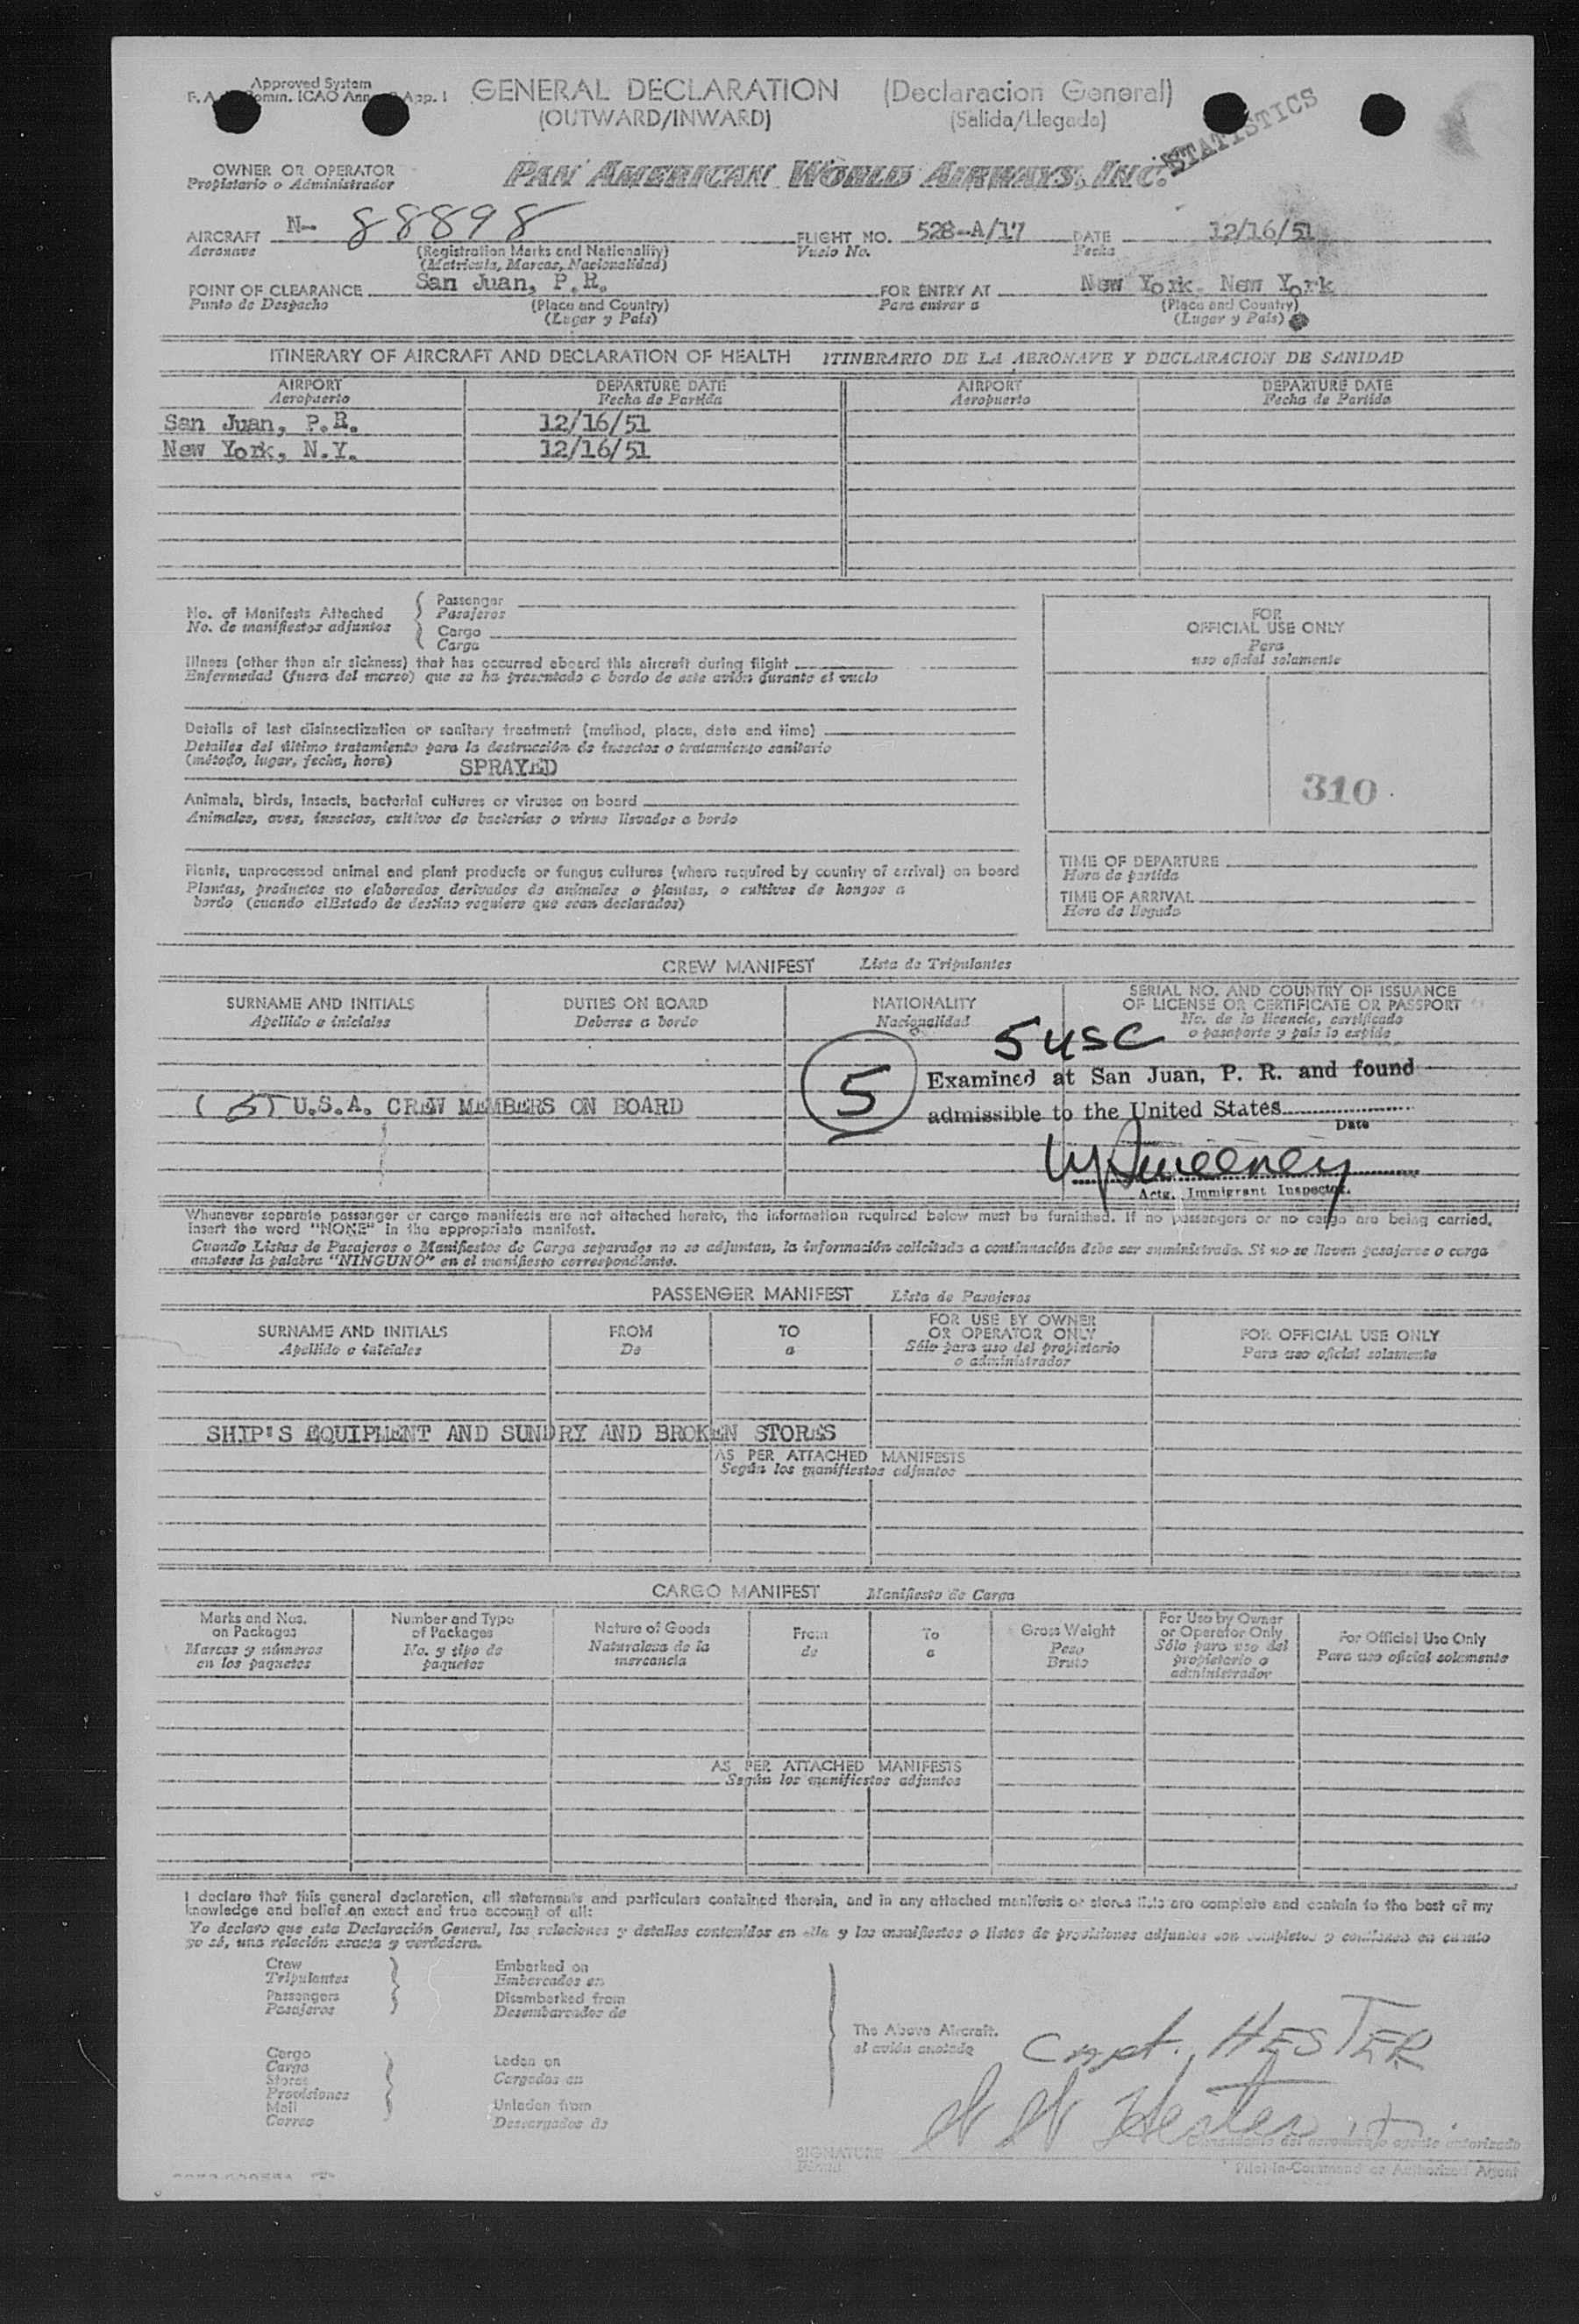 Approved System
GENERAL DECLARATION (Declaracion General)
(OUTWARD/INWARD) (Salida/Llegada)
STATISTICS
OWNER OR OPERATOR
Propietario o Administrador
PAN AMERICAN WORLD AIRWAYS, INC.
AIRCRAFT N- 88898 FLIGHT NO. 528-A/17 DATE 12/16/51
Aeronave (Registration Marks and Nationality) Vuelo No. Fecha
(Matricula, Marcas, Nacionalidad)
POINT OF CLEARANCE San Juan, P.R. FOR ENTRY AT New York, New York
Punto de Despacho (Place and Country) Para entrar a (Place and Country)
(Lugar y Pais) (Lugar y Pais)
ITINERARY OF AIRCRAFT AND DECLARATION OF HEALTH ITINERARIO DE LA AERONAVE Y DECLARACION DE SANIDAD
AIRPORT DEPARTURE DATE AIRPORT DEPARTURE DATE
Aeropuerto Fecha de Partida Aeropuerto Fecha de Partida
San Juan, P.R. 12/16/51
New York, N.Y. 12/16/51
No. of Manifests Attached
No. de manifiestos adjuntos
Passenger
Pasajeros
Cargo
Carga
Illness (other than air sickness) that has occurred aboard this aircraft during flight
Enfermedad (fuera del mareo) que se ha presentado a bordo de este avión durante el vuelo
Details of last disinsectization or sanitary treatment (method, place, date and time)
Detalles del último tratamiento para la destrucción de insectos o tratamiento sanitario
(método, lugar, fecha, hora) SPRAYED
Animals, birds, insects, bacterial cultures or viruses on board
Animales, aves, insectos, cultivos de bacterias o virus llevados a bordo
Plants, unprocessed animal and plant products or fungus cultures (where required by country of arrival) on board
Plantas, productos no elaborados derivados de animales o plantas, o cultivos de hongos a
bordo (cuando elEstado de destino requiere que sean declarados)
FOR
OFFICIAL USE ONLY
Para
uso oficial solamente
310
TIME OF DEPARTURE
Hora de partida
TIME OF ARRIVAL
Hora de llegada
CREW MANIFEST Lista de Tripulantes
SURNAME AND INITIALS DUTIES ON BOARD NATIONALITY SERIAL NO. AND COUNTRY OF ISSUANCE
OF LICENSE OR CERTIFICATE OR PASSPORT
Apellido e iniciales Deberes a bordo Nacionalidad No. de la licencia, certificado
o pasaporte y pais lo expide
5 USC
Examined at San Juan, P. R. and found
(5) U.S.A. CREW MEMBERS ON BOARD 5 admissible to the United States
Date
Sweeney
Actg. Immigrant Inspector.
Whenever separate passenger or cargo manifests are not attached hereto, the information required below must be furnished. If no passengers or no cargo are being carried,
insert the word "NONE" in the appropriate manifest.
Cuando Listas de Pasajeros o Manifiestos de Carga separados no se adjuntan, la información solicitada a continuación debe ser suministrada. Si no se lleven pasajeros o carga
anotese la palabra "NINGUNO" en el manifiesto correspondiente.
PASSENGER MANIFEST Lista de Pasajeros
SURNAME AND INITIALS FROM TO FOR USE BY OWNER
OR OPERATOR ONLY FOR OFFICIAL USE ONLY
Apellido e iniciales De a Sólo para uso del propietario
o administrador Para uso oficial solamente
SHIP'S EQUIPMENT AND SUNDRY AND BROKEN STORES
AS PER ATTACHED MANIFESTS
Según los manifiestos adjuntos
CARGO MANIFEST Manifiesto de Carga
Marks and Nos.
on Packages
Marcas y números
en los paquetes
Number and Type
of Packages
No. y tipo de
paquetes
Nature of Goods
Naturalesa de la
mercancia
From
de
To
a
Gross Weight
Peso
Bruto
For Use by Owner
or Operator Only
Sólo para uso del
propietario o
administrador
For Official Use Only
Para uso oficial solamente
AS PER ATTACHED MANIFESTS
Según los manifiestos adjuntos
I declare that this general declaration, all statements and particulars contained therein, and in any attached manifests or stores lists are complete and contain to the best of my
knowledge and belief an exact and true account of all:
Yo declaro que esta Declaración General, las relaciones y detalles contenidos en ella y los manifiestos o listas de provisiones adjuntas son completos y contienen en cuanto
yo sé, una relación exacta y verdadera.
Crew
Tripulantes
Passengers
Pasajeros
Embarked on
Embarcados en
Disembarked from
Desembarcados de
Cargo
Carga
Stores
Provisiones
Mail
Correo
Laden on
Cargados en
Unladen from
Descargados de
The Above Aircraft.
el avión anotado
Capt. HESTER
Hester
SIGNATURE
Firma
Comandante del aeronave o agente autorizado
Pilot-in-Command or Authorized Agent